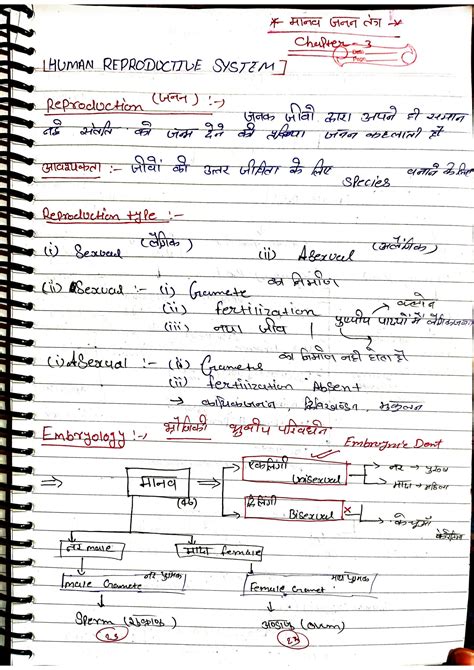 * मानव जनन तंत्र →
Chapter - 3
[HUMAN REPRODUCTIVE SYSTEM]
Reproduction (जनन) :-
जनक जीवों द्वारा अपने ही समान
नई संतति को जन्म देने की प्रक्रिया जनन कहलाती हैं
आवश्यकता :- जीवों की उत्तर जीविता के लिए
species
Reproduction type :-
(i) Sexual (लैंगिक) (ii) Asexual (अलैंगिक)
(ii) Sexual :- (i) Gamete का निर्माण
(ii) fertilization
(iii) नया जीव
(i) Asexual :- (i) Gamets का निर्माण नहीं होता हैं
(ii) fertilization Absent
→ कायिकजनन, द्विविखण्डन, मुकुलन
Embryology :- भ्रौणिकी भ्रुणीय परिवर्धन
मानव
(46)
एकलिंगी
Unisexual
→ नर → पुरुष
→ मादा → महिला
द्विलिंगी
Bisexual
x
→ केंचुआ
नर male
मादा female
male Gamete नर युग्मक
Female Gamet मादा युग्मक
Sperm (शुक्राणु)
23
अण्डाणु (ovum)
23